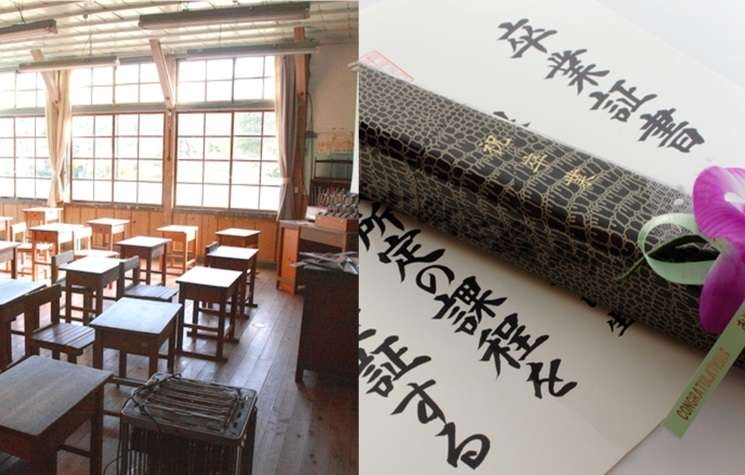 卒業証書
祝卒業
所定の課程を
証する
CONGRATULATIONS